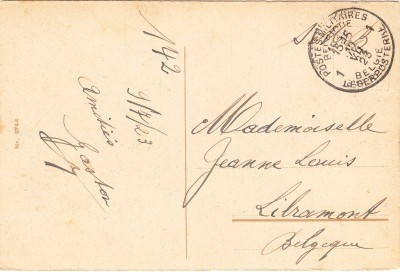 142
9/7/23
Amitiés
Gaston
POSTES MILITAIRES
BELGIQUE
1
BELGIE
LEGERPOSTERIJ
1
Mademoiselle
Jeanne Louis
Libramont
Belgique